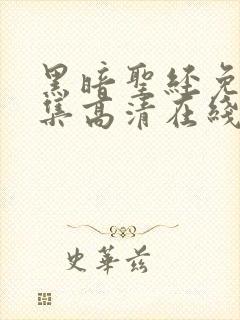 黑暗聖經免
集高清在綫
史華兹